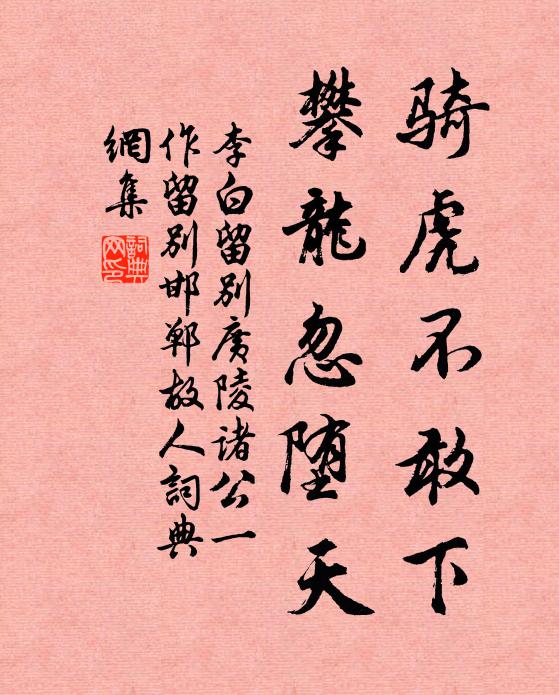 骑虎不敢下
攀龍忽堕天
李白留别廣陵诸公一
作留别邯郸故人詞典
網集
詞典
网印